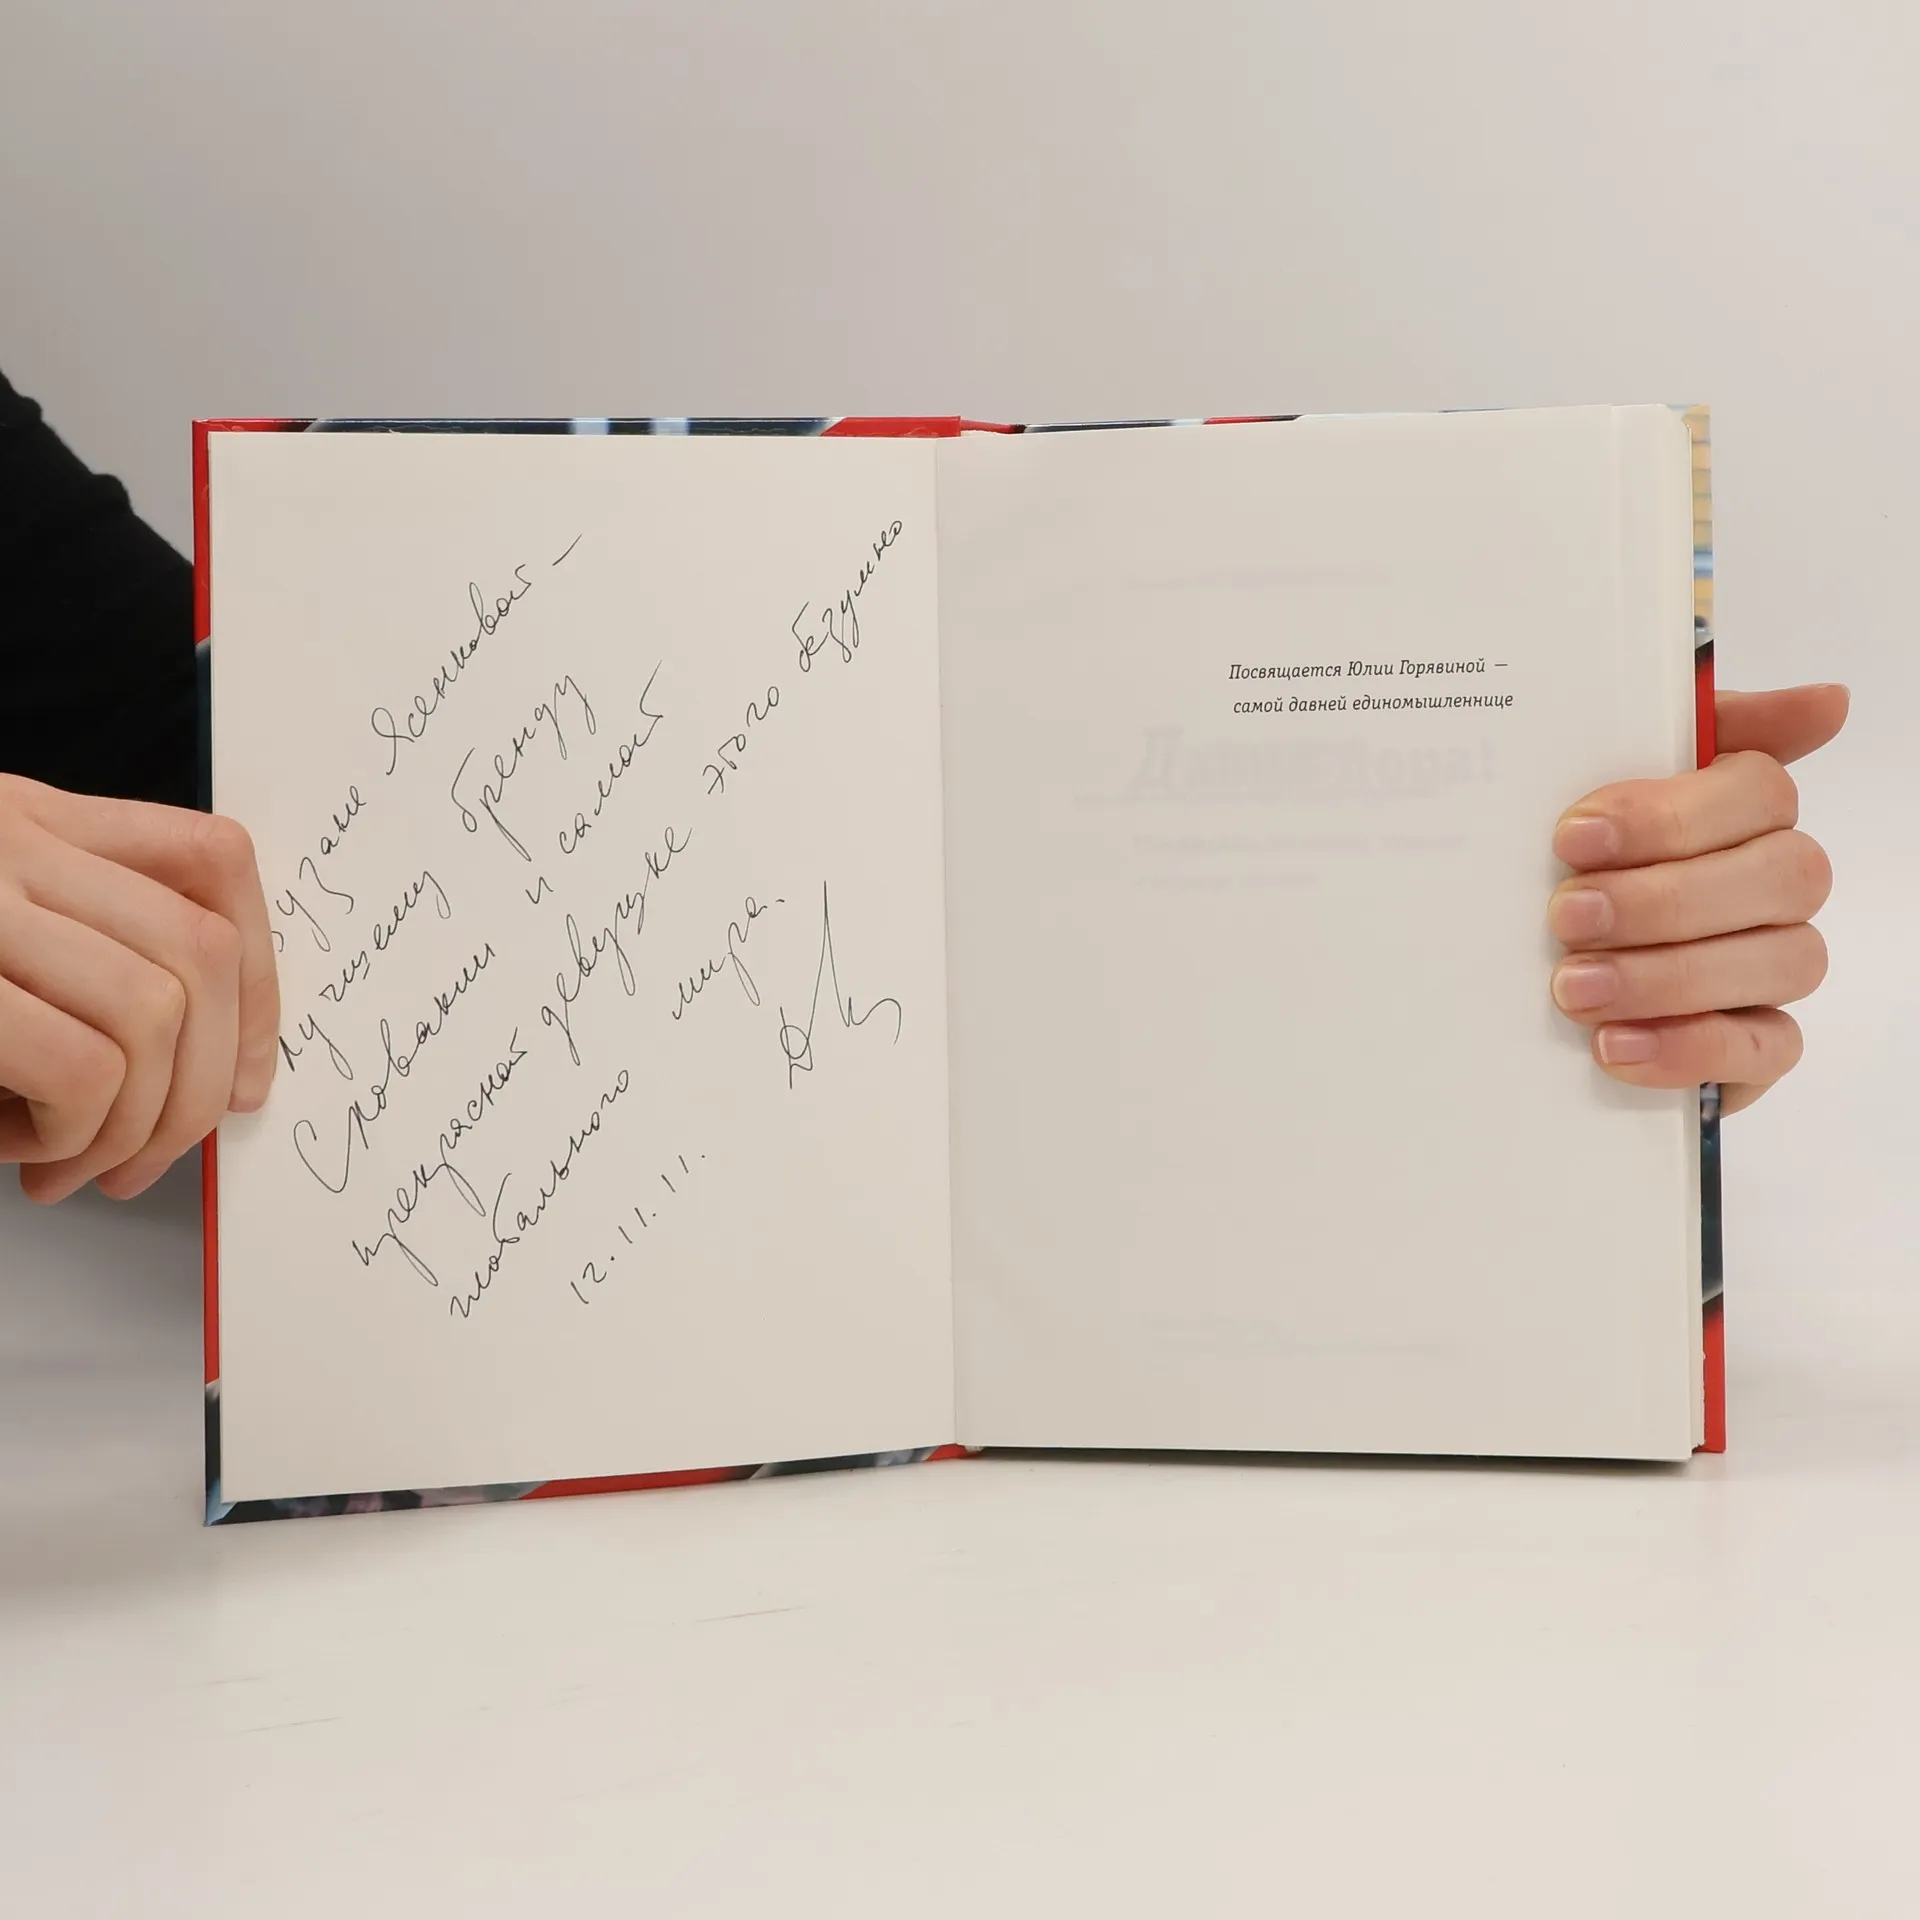 Сузане Ясенковой —
лучшему бренду
Словакии и самой
прекрасной девушке этого безумно
глобального мира.
12.11.11.
Посвящается Юлии Горявиной —
самой давней единомышленнице